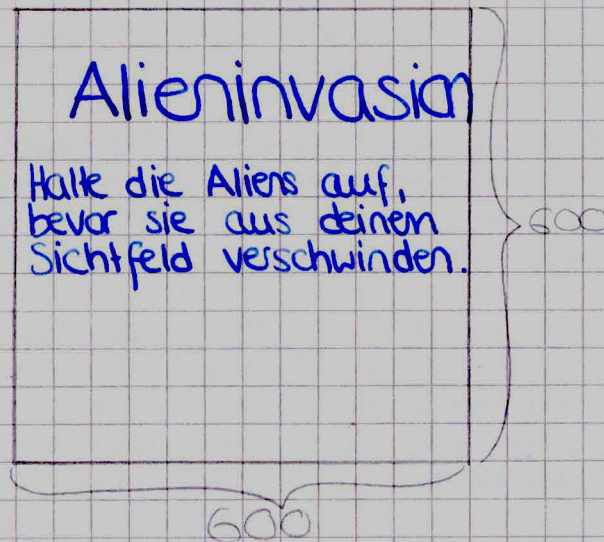 Alieninvasion
Halte die Aliens auf,
bevor sie aus deinem
Sichtfeld verschwinden.
600
600